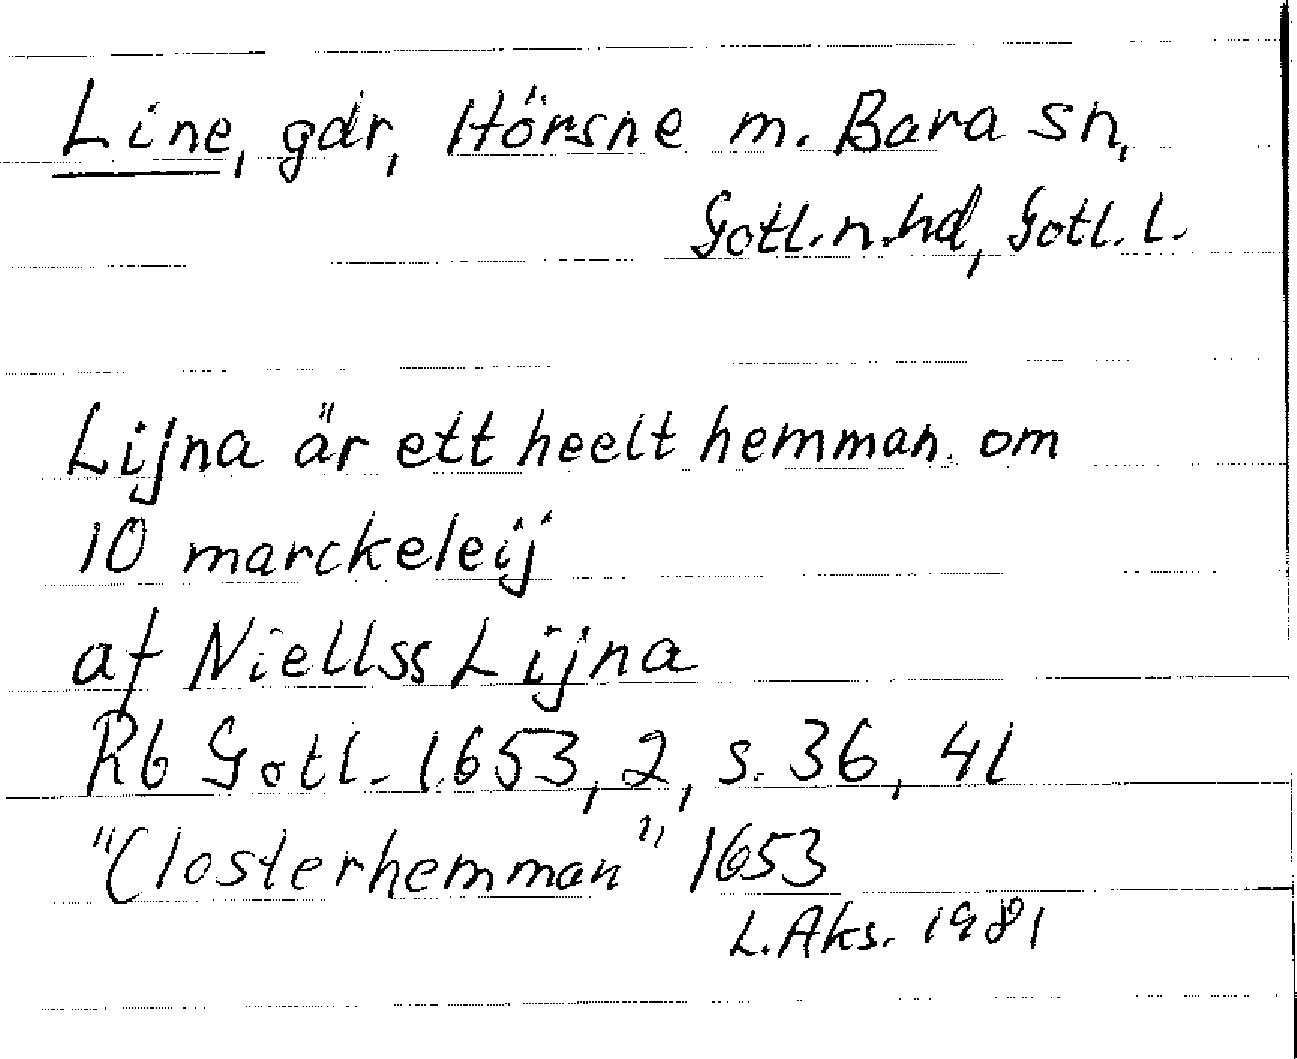 Line, gdr, Hörsne m. Bara sn,
Gotl. n. hd, Gotl. l.
Lijna är ett heelt hemman. om
10 marckeleij
af Niellss Lijna
Rb Gotl. 1653, 2, s. 36, 41
"Closterhemman" 1653
L. Aks. 1981